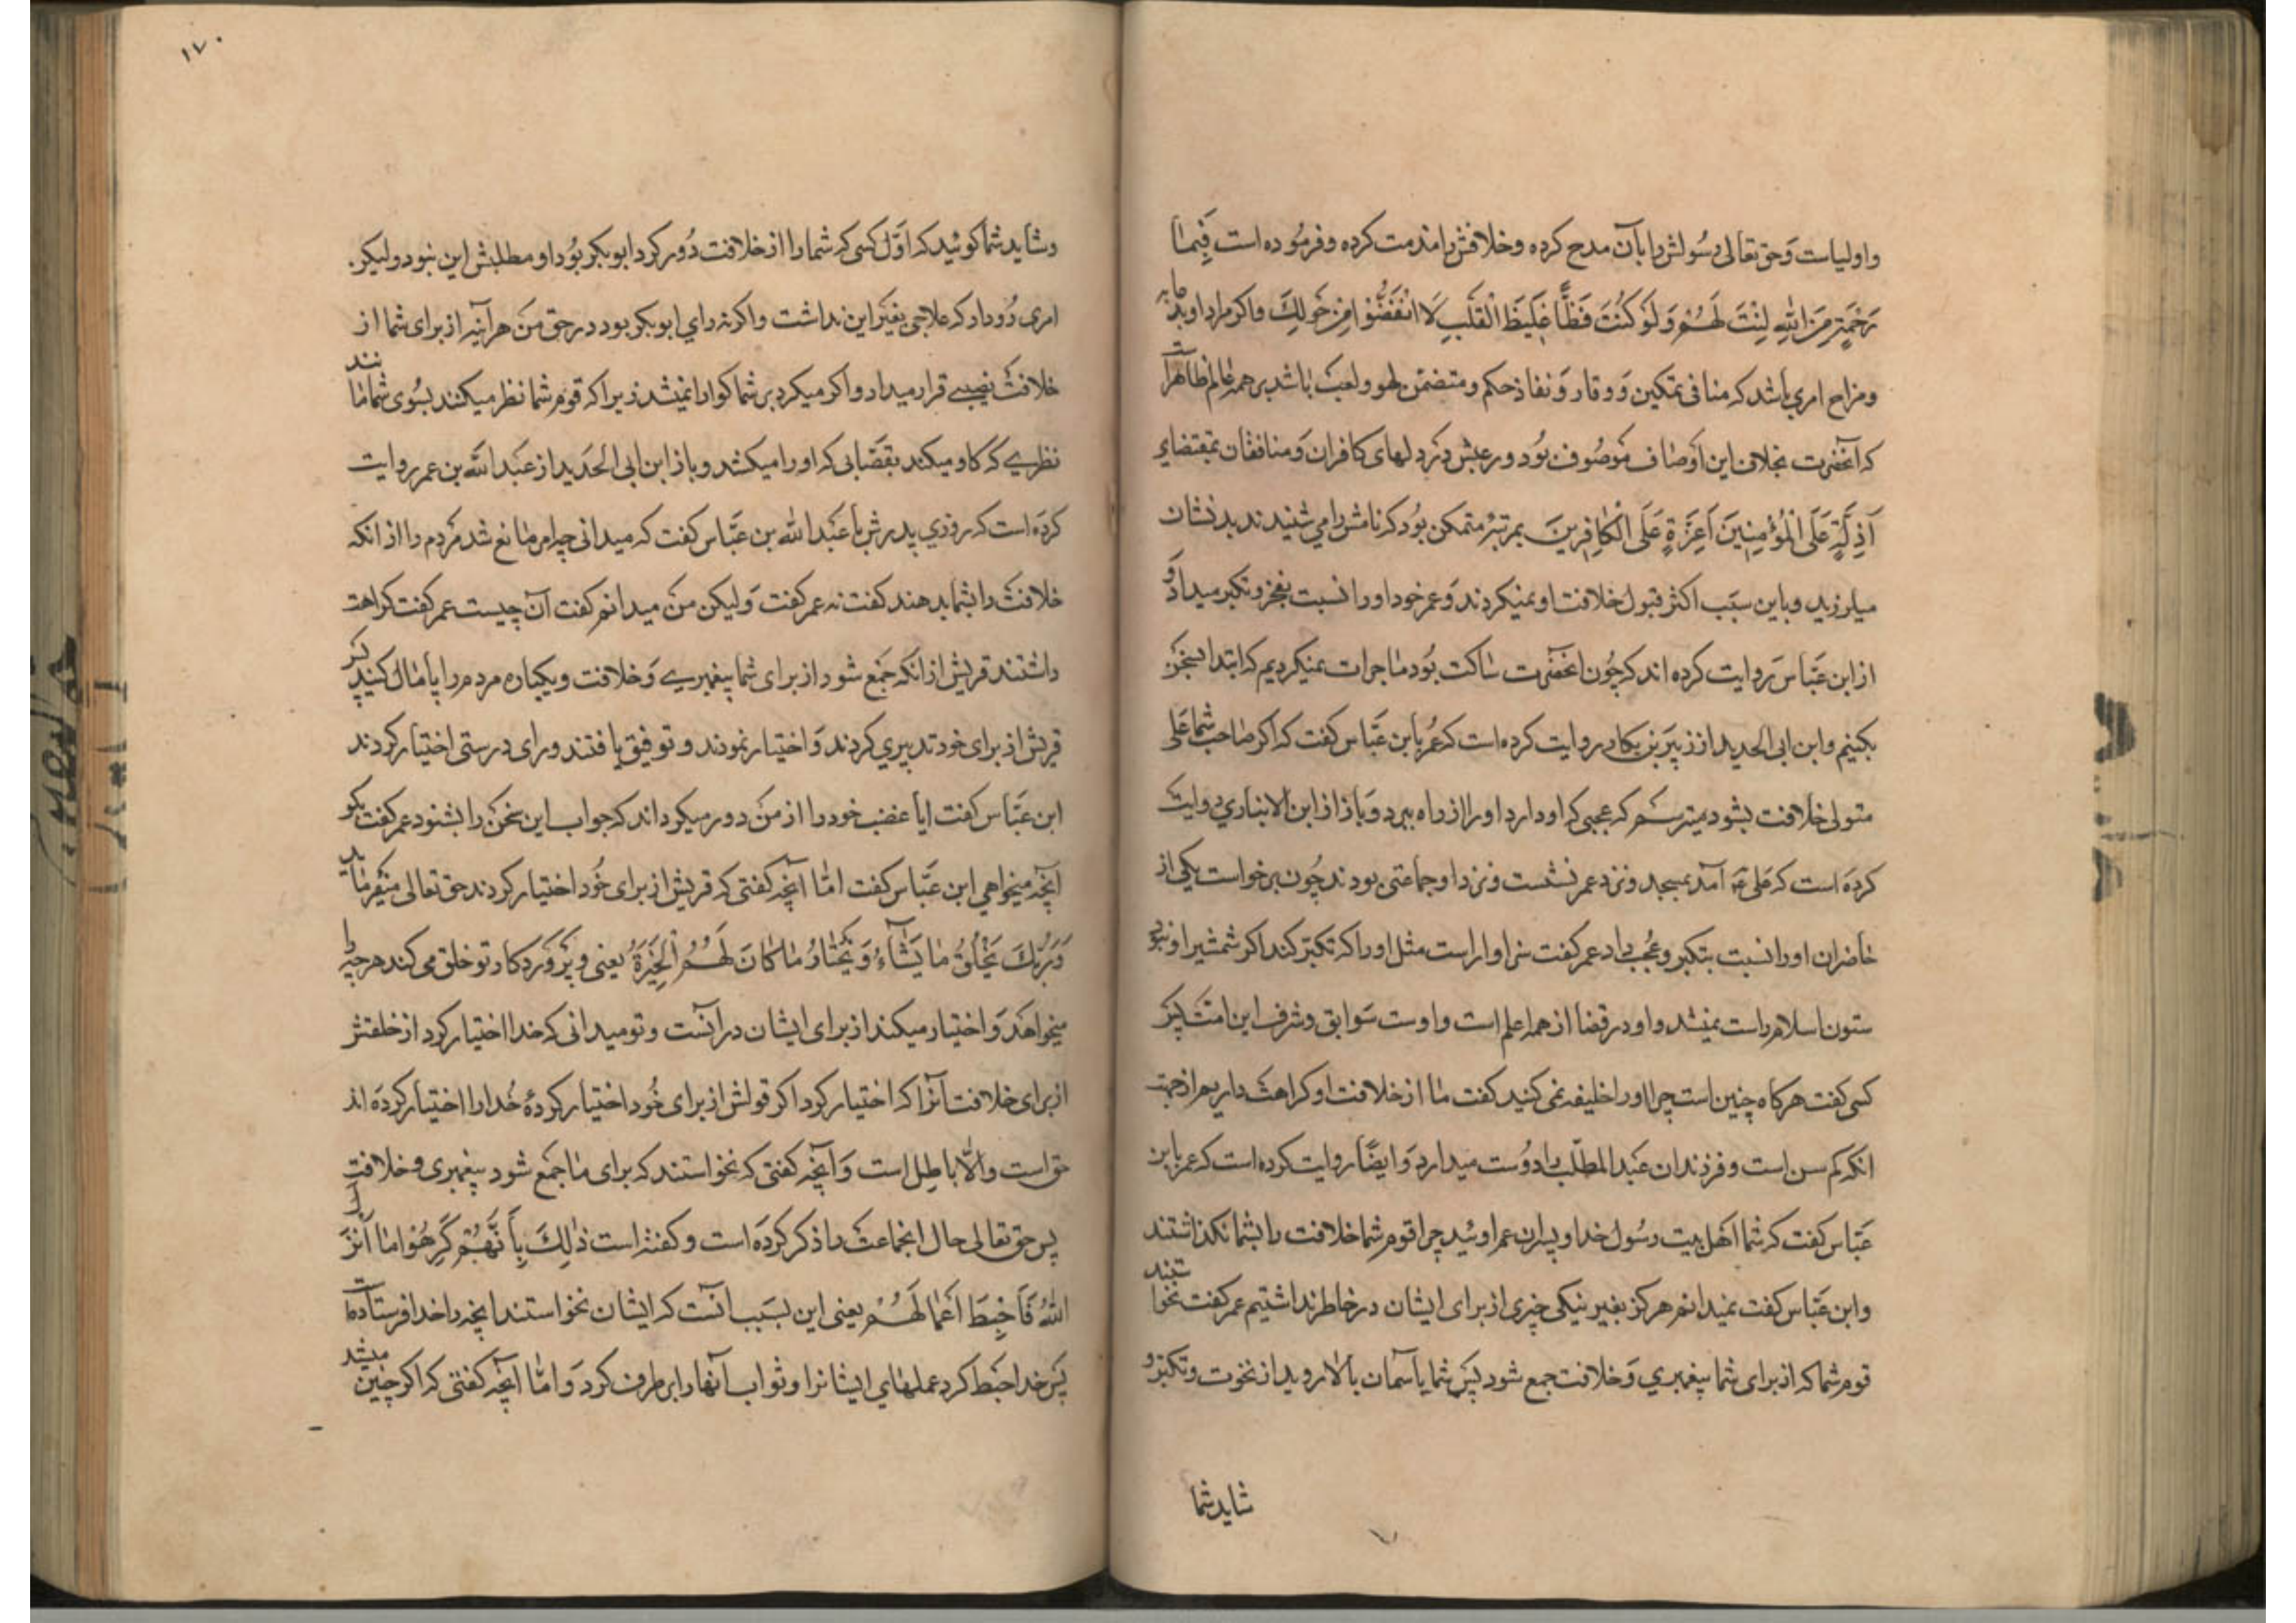 واولیاست وحق تعالی رسولش را بآن مدح کرده وخلافش را مذمت کرده وفرموده است فَبِمٰا
رَحْمَةٍ مِنَ اللّٰهِ لِنْتَ لَهُمْ وَلَوْ كُنْتَ فَظًّا غَلِيظَ الْقَلْبِ لَا انْفَضُّوْا مِنْ حَوْلِكَ واکر مراد او بدعابه
ومزاح امری باشد که منافی تمکین و وقار و نفاذ حکم و متضمن لهو ولعب باشد بر همه عالم ظاهراست
که آنحضرت بخلاف این اوصاف موصوف بود ورعبش در دلهای کافران ومنافقان بمقتضای
اَذِلَّةٍ عَلَى الْمُؤْمِنِينَ اَعِزَّةٍ عَلَى الْكٰافِرِينَ بمرتبۀ متمکن بود که نامش را می شنیدند بدنشان
میلرزید وباین سبب اکثر قبول خلافت او نمیکردند وعمر خود اورا نسبت بفخر وتکبر میداد و
از ابن عبّاس روایت کرده اند که چون آنحضرت ساکت بود ما جرات نمیکردیم که ابتدا بسخن
بکنیم وابن ابی الحدید از زبیر بن بکار روایت کرده است که عمر بابن عبّاس کفت که اکر صاحب شما علی
متولی خلافت بشود میترسم که عجبی که او دارد اورا از راه ببرد وباز از ابن الانباری روایت
کرده است که علی عه آمد بمسجد ونزد عمر نشست ونزد او جماعتی بودند چون برخواست یکی از
حاضران اورا نسبت بتکبر وعجب داد عمر کفت سزاوار است مثل اورا که تکبّر کند اکر شمشیر او نبودی
ستون اسلام راست نمیشد واو در قضا از همه اعلم است واوست سوابق وشرف این امت پس
کسی کفت هرکاه چنین است چرا اورا خلیفه نمی کنید کفت ما از خلافت او کراهت داریم از جهت
انکه کم سن است وفرزندان عبد المطلّب را دوست میدارد وایضًا روایت کرده است که عمر بابن
عبّاس کفت که شما اهل بیت رسول خدا وپسران عم اوئید چرا قوم شما خلافت را بشما نکذاشتند
وابن عبّاس کفت نمیدانم هرکز بغیر نیکی چیزی از برای ایشان در خاطر نداشتیم عمر کفت نخواستند
قوم شما که از برای شما پیغمبری وخلافت جمع شود پس شما باسمان بالا روید از نخوت وتکبر و
شاید شما
۱۷۰
وشاید شما کوئید که اوّل کسی که شما را از خلافت دور کرد ابوبکر بود او مطلبش این نبود ولیکن
امری رُو داد که علاجی بغیر این نداشت واکر نه رای ابوبکر بود در حق من هر آینه از برای شما از
خلافت نصیبی قرار میداد واکر میکرد بر شما کوارا نمیشد زیرا که قوم شما نظر میکنند بسوی شما مانند
نظری که کاو میکند بقصّابی که اورا میکشد وباز ابن ابی الحدید از عبد اللّه بن عمر روایت
کرده است که روزی پدرش با عبد اللّه بن عبّاس کفت که میدانی چه امر مانع شد مردم را از انکه
خلافت را بشما بدهند کفت نه عمر کفت ولیکن من میدانم کفت آن چیست عمر کفت کراهت
داشتند قریش از انکه جمع شود از برای شما پیغمبری وخلافت ویکباره مردم را پامال کنید پس
قریش از برای خود تدبیری کردند واختیار نمودند وتوفیق یافتند ورای درستی اختیار کردند
ابن عبّاس کفت ایا غضب خود را از من دور میکرداند که جواب این سخن را بشنود عمر کفت بکو
آنچه میخواهی ابن عبّاس کفت امّا آنچه کفتی که قریش از برای خود اختیار کردند حق تعالی میفرماید
وَرَبُّكَ يَخْلُقُ مٰا يَشٰآءُ وَيَخْتٰارُ مٰا كٰانَ لَهُمُ الْخِيَرَةُ یعنی وپروردکار تو خلق می کند هر چه را
میخواهد واختیار میکند از برای ایشان در انست وتو میدانی که خدا اختیار کرد از خلقش
از برای خلافت آنرا که اختیار کرد اکر قولش از برای خود اختیار کردۀ خدا را اختیار کرده اند
حق است والّا باطل است وآنچه کفتی که نخواستند که برای ما جمع شود پیغمبری وخلافت
پس حق تعالی حال انجماعت را ذکر کرده است وکفته است ذٰلِكَ بِاَنَّهُمْ كَرِهُوا مٰا اَنْزَلَ
اللّٰهُ فَاَحْبَطَ اَعْمٰالَهُمْ یعنی این بسبب انست که ایشان نخواستند انچه را خدا فرستاده است
پس خدا حبط کرد عملهای ایشانرا وثواب آنها را بر طرف کرد وامّا آنچه کفتی که اکر چنین میشد